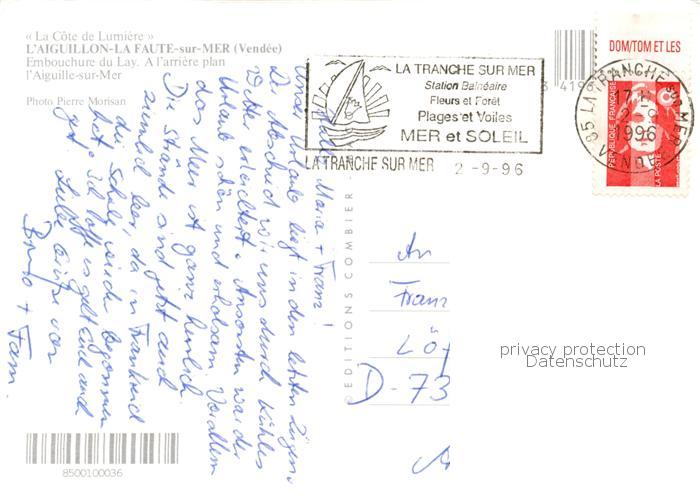 « La Côte de Lumière »
L'AIGUILLON-LA FAUTE-sur-MER (Vendée)
Embouchure du Lay. A l'arrière plan
l'Aiguille-sur-Mer
Photo Pierre Morisan
DOM/TOM ET LES
LA TRANCHE SUR MER
Station Balnéaire
Fleurs et Forêt
Plages et Voiles
MER et SOLEIL
LA TRANCHE SUR MER 2-9-96
LA TRANCHE SUR MER
17 H
2-9
1996
REPUBLIQUE FRANÇAISE
LA POSTE
Maria + Franz!
Urlaub liegt in den letzten Zügen.
Der Abschied wird uns durch kühles
Wetter erleichtert. Ansonsten war der
Urlaub schön und erholsam. Vor allem
das Meer ist ganz herrlich.
Die Strände sind jetzt auch
ziemlich leer, da in Frankreich
die Schule wieder begonnen
hat. Ich hoffe es geht Euch auch
gut. Liebe Grüße von
Bruno + Fam.
EDITIONS COMBIER
An
Franz
D-73
privacy protection
Datenschutz
8500100036